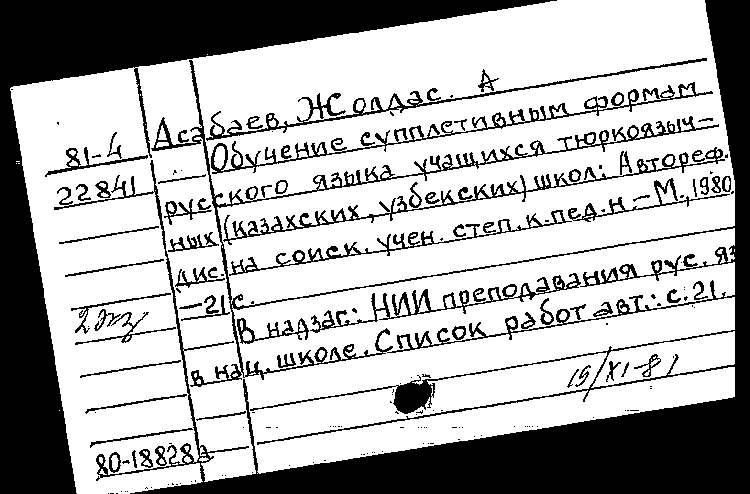 Асабаев, Жолдас. А
81-4
Обучение супплетивным формам
22841
русского языка учащихся тюркоязыч-
ных (казахских, узбекских) школ: Автореф.
дис. на соиск. учен. степ. к.пед.н. - М., 1980
- 21 с.
2 экз
В надзаг.: НИИ преподавания рус. яз
в нац. школе. Список работ авт.: с. 21.
19/XI-81
80-18828а